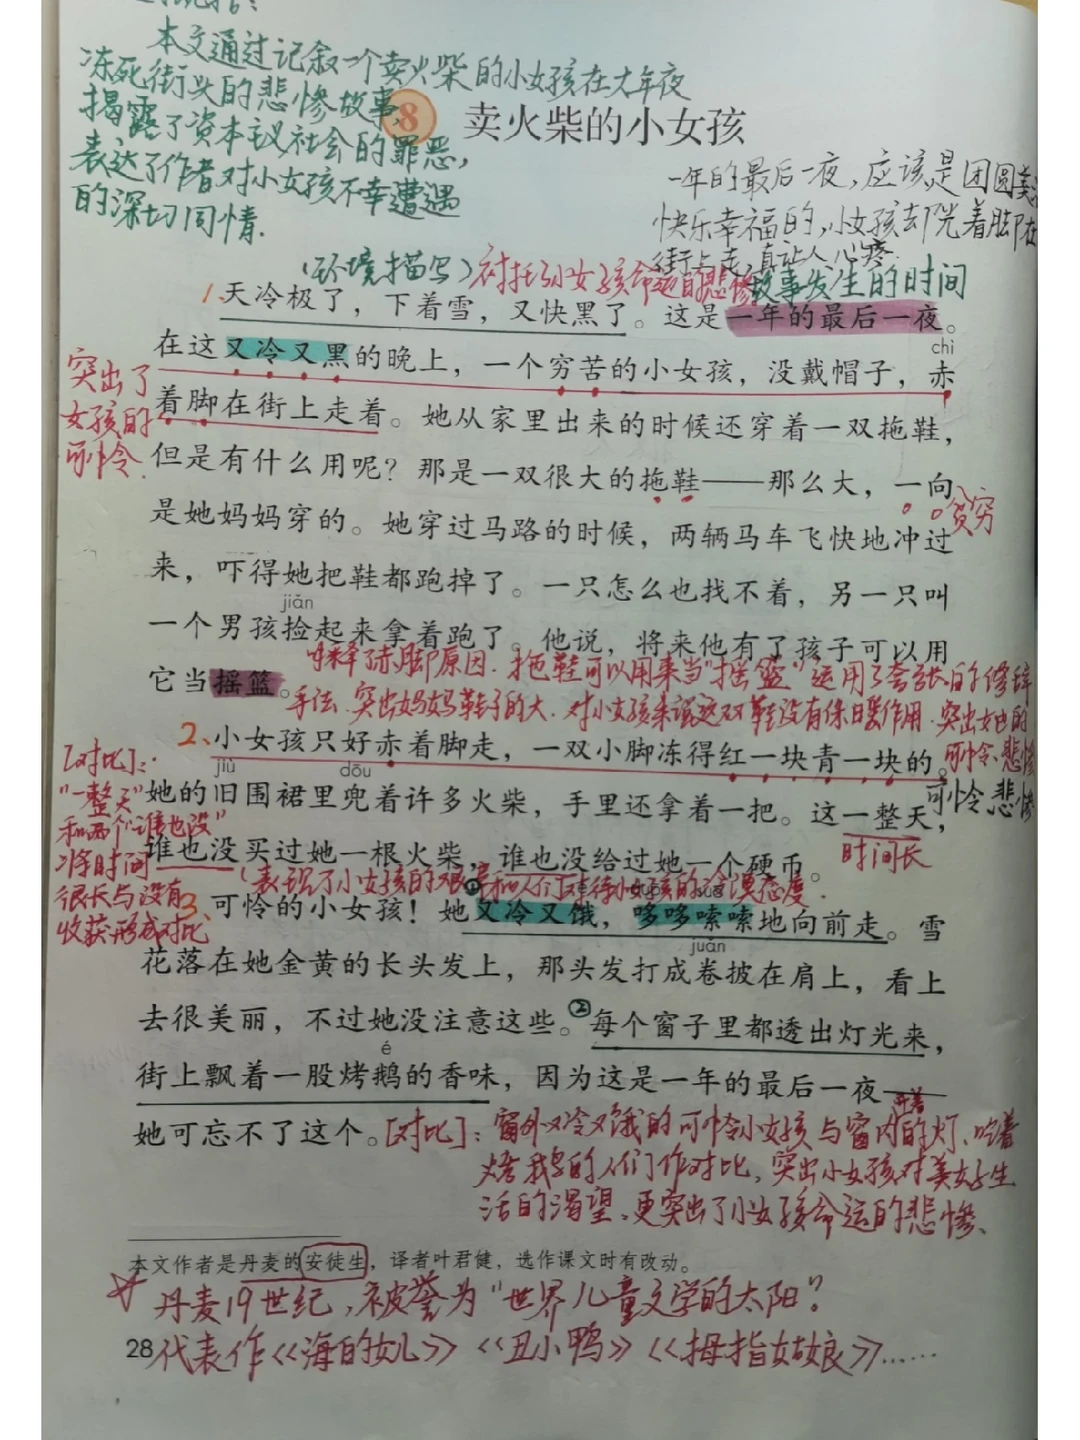 本文通过记叙一个卖火柴的小女孩在大年夜
冻死街头的悲惨故事,
揭露了资本主义社会的罪恶,
表达了作者对小女孩不幸遭遇
的深切同情.
8 卖火柴的小女孩
一年的最后一夜,应该是团圆美
快乐幸福的,小女孩却光着脚在
街上走,真让人心疼.
(环境描写)衬托小女孩命运的悲惨 故事发生的时间
1.天冷极了，下着雪，又快黑了。这是一年的最后一夜。
chì
在这又冷又黑的晚上，一个穷苦的小女孩，没戴帽子，赤
突出了
女孩的
可怜.
着脚在街上走着。她从家里出来的时候还穿着一双拖鞋，
但是有什么用呢？那是一双很大的拖鞋——那么大，一向
贫穷
是她妈妈穿的。她穿过马路的时候，两辆马车飞快地冲过
来，吓得她把鞋都跑掉了。一只怎么也找不着，另一只叫
jiǎn
一个男孩捡起来拿着跑了。他说，将来他有了孩子可以用
解释了赤脚原因.拖鞋可以用来当“摇篮”运用了夸张的修辞
它当摇篮。
手法.突出妈妈鞋子的大.对小女孩来说这双鞋没有保暖作用.突出她的
可怜、悲惨
2、小女孩只好赤着脚走，一双小脚冻得红一块青一块的。
可怜 悲惨
[对比]:
“一整天”
和两个“谁也没”
将时间
很长与没有
收获形成对比
jiù dōu
她的旧围裙里兜着许多火柴，手里还拿着一把。这一整天，
谁也没买过她一根火柴，谁也没给过她一个硬币。
时间长
(表现了小女孩的艰辛和人们对待小女孩的冷漠态度.
3、可怜的小女孩！她①又冷又饿，哆哆嗦嗦地向前走。雪
juǎn
花落在她金黄的长头发上，那头发打成卷披在肩上，看上
去很美丽，不过她没注意这些。②每个窗子里都透出灯光来，
é
街上飘着一股烤鹅的香味，因为这是一年的最后一夜——
她可忘不了这个。[对比]:窗外又冷又饿的可怜小女孩与窗内开着的灯、吃着
烤鹅的人们作对比,突出小女孩对美好生
活的渴望.更突出了小女孩命运的悲惨、
本文作者是丹麦的安徒生，译者叶君健，选作课文时有改动。
丹麦19世纪,被誉为“世界儿童文学的太阳”.
28 代表作《海的女儿》《丑小鸭》《拇指姑娘》……